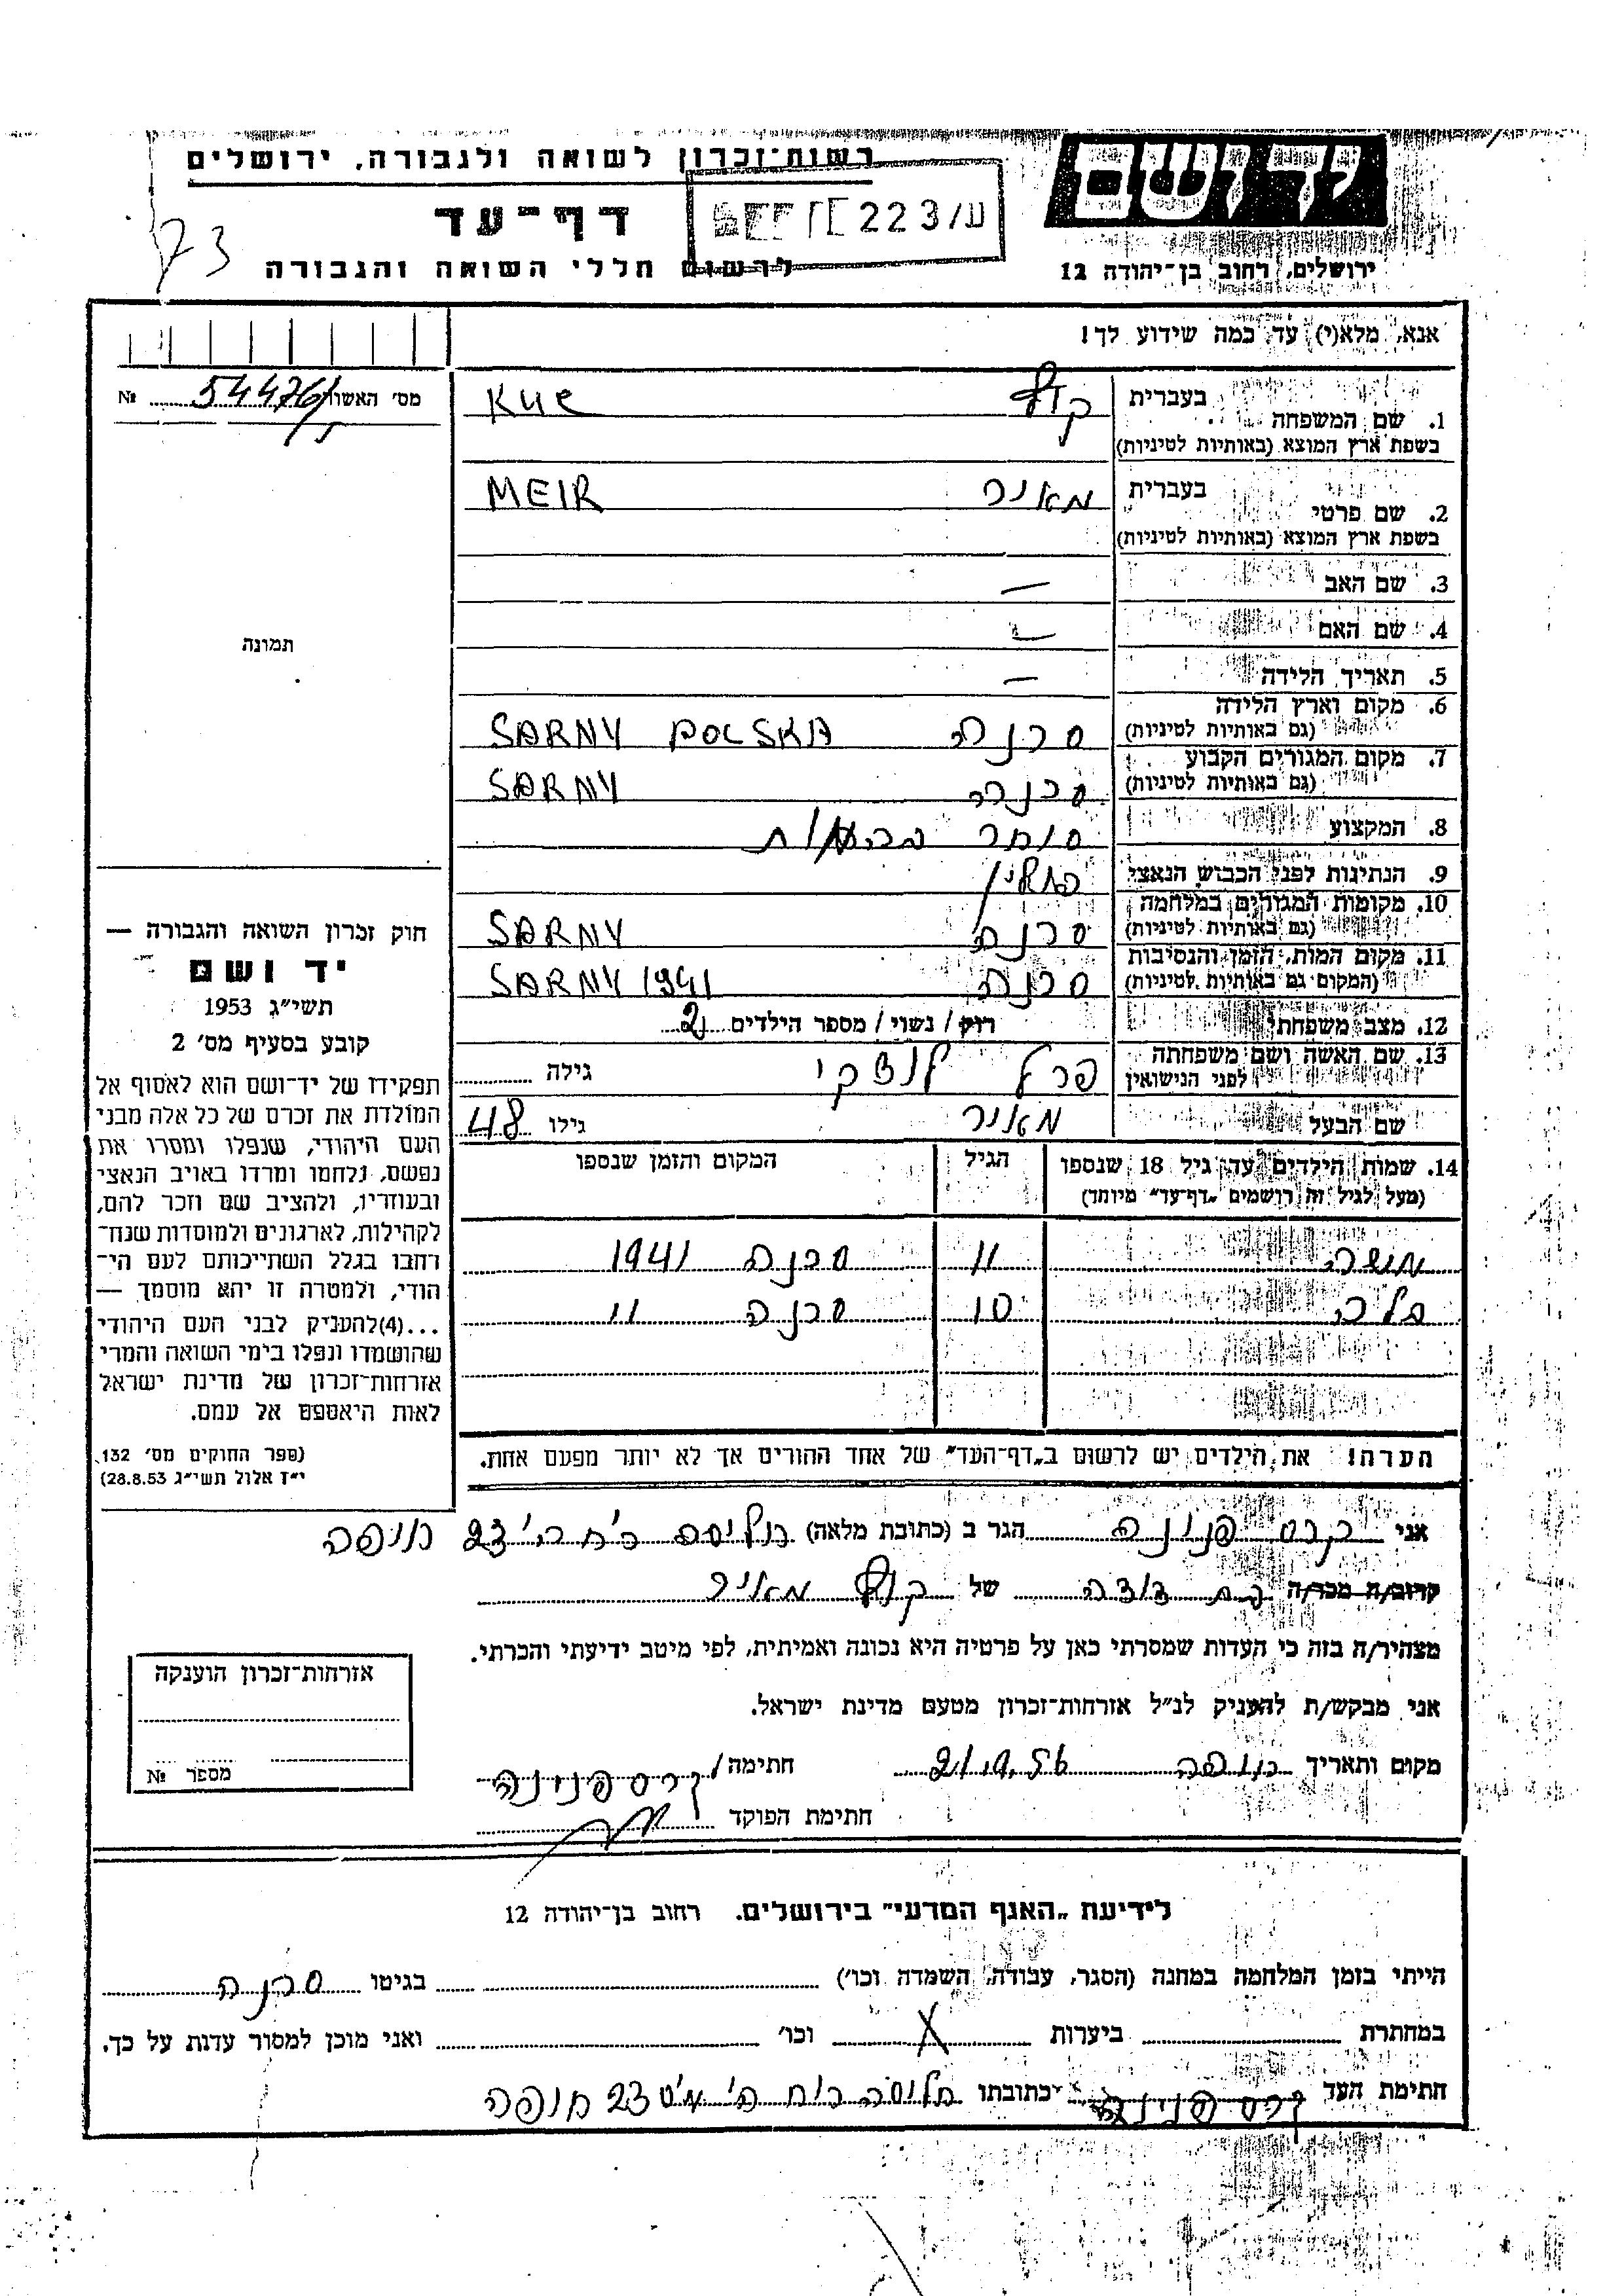 רשות־זכרון לשואה ולגבורה, ירושלים
דף־עד
223/ע
73
לרשום חללי השואה והגבורה
יד ושם
ירושלים, רחוב בן־יהודה 12
אנא, מלא(י) עד כמה שידוע לך!
מס׳ האשור 54476 №
1. שם המשפחה בעברית
בשפת ארץ המוצא (באותיות לטיניות)
2. שם פרטי בעברית מאיר MEIR
בשפת ארץ המוצא (באותיות לטיניות)
3. שם האב —
4. שם האם —
5. תאריך הלידה —
6. מקום וארץ הלידה (גם באותיות לטיניות) סרנה SARNY POLSKA
7. מקום המגורים הקבוע (גם באותיות לטיניות) סרנה SARNY
8. המקצוע סוחר
9. הנתינות לפני הכבוש הנאצי
10. מקומות המגורים במלחמה (גם באותיות לטיניות) סרנה SARNY
11. מקום המות, הזמן והנסיבות (המקום גם באותיות לטיניות) סרנה SARNY 1941
12. מצב משפחתי רוק / נשוי / מספר הילדים 2
13. שם האשה ושם משפחתה לפני הנישואין פרל גילה
שם הבעל מאיר גילו 48
14. שמות הילדים עד גיל 18 שנספו הגיל המקום והזמן שנספו
(מעל לגיל זה רושמים „דף־עד״ מיוחד)
משה 11 סרנה 1941
10 סרנה 11
הערה! את הילדים יש לרשום ב„דף־העד״ של אחד ההורים אך לא יותר מפעם אחת.
תמונה
חוק זכרון השואה והגבורה —
יד ושם
תשי״ג 1953
קובע בסעיף מס׳ 2
תפקידו של יד־ושם הוא לאסוף אל
המולדת את זכרם של כל אלה מבני
העם היהודי, שנפלו ומסרו את
נפשם, נלחמו ומרדו באויב הנאצי
ובעוזריו, ולהציב שם וזכר להם,
לקהילות, לארגונים ולמוסדות שנח־
רבו בגלל השתייכותם לעם הי־
הודי, ולמטרה זו יהא מוסמך —
...(4)להעניק לבני העם היהודי
שהושמדו ונפלו בימי השואה והמרי
אזרחות־זכרון של מדינת ישראל
לאות היאספם אל עמם.
(ספר החוקים מס׳ 132,
י״ז אלול תשי״ג 28.8.53)
אני קרס פנינה הגר ב (כתובת מלאה) 23 חיפה
קרוב/ה מכר/ה בת דודה של מאיר
מצהיר/ה בזה כי העדות שמסרתי כאן על פרטיה היא נכונה ואמיתית, לפי מיטב ידיעתי והכרתי.
אני מבקש/ת להעניק לנ״ל אזרחות־זכרון מטעם מדינת ישראל.
מקום ותאריך חיפה חתימה קרס פנינה
חתימת הפוקד
אזרחות־זכרון הוענקה
מספר №
לידיעת „האגף המדעי״ בירושלים. רחוב בן־יהודה 12
הייתי בזמן המלחמה במחנה (הסגר, עבודה, השמדה וכו׳) בגיטו סרנה
במחתרת ביערות X וכו׳ ואני מוכן למסור עדות על כך.
חתימת העד קרס פנינה כתובתו 23 חיפה